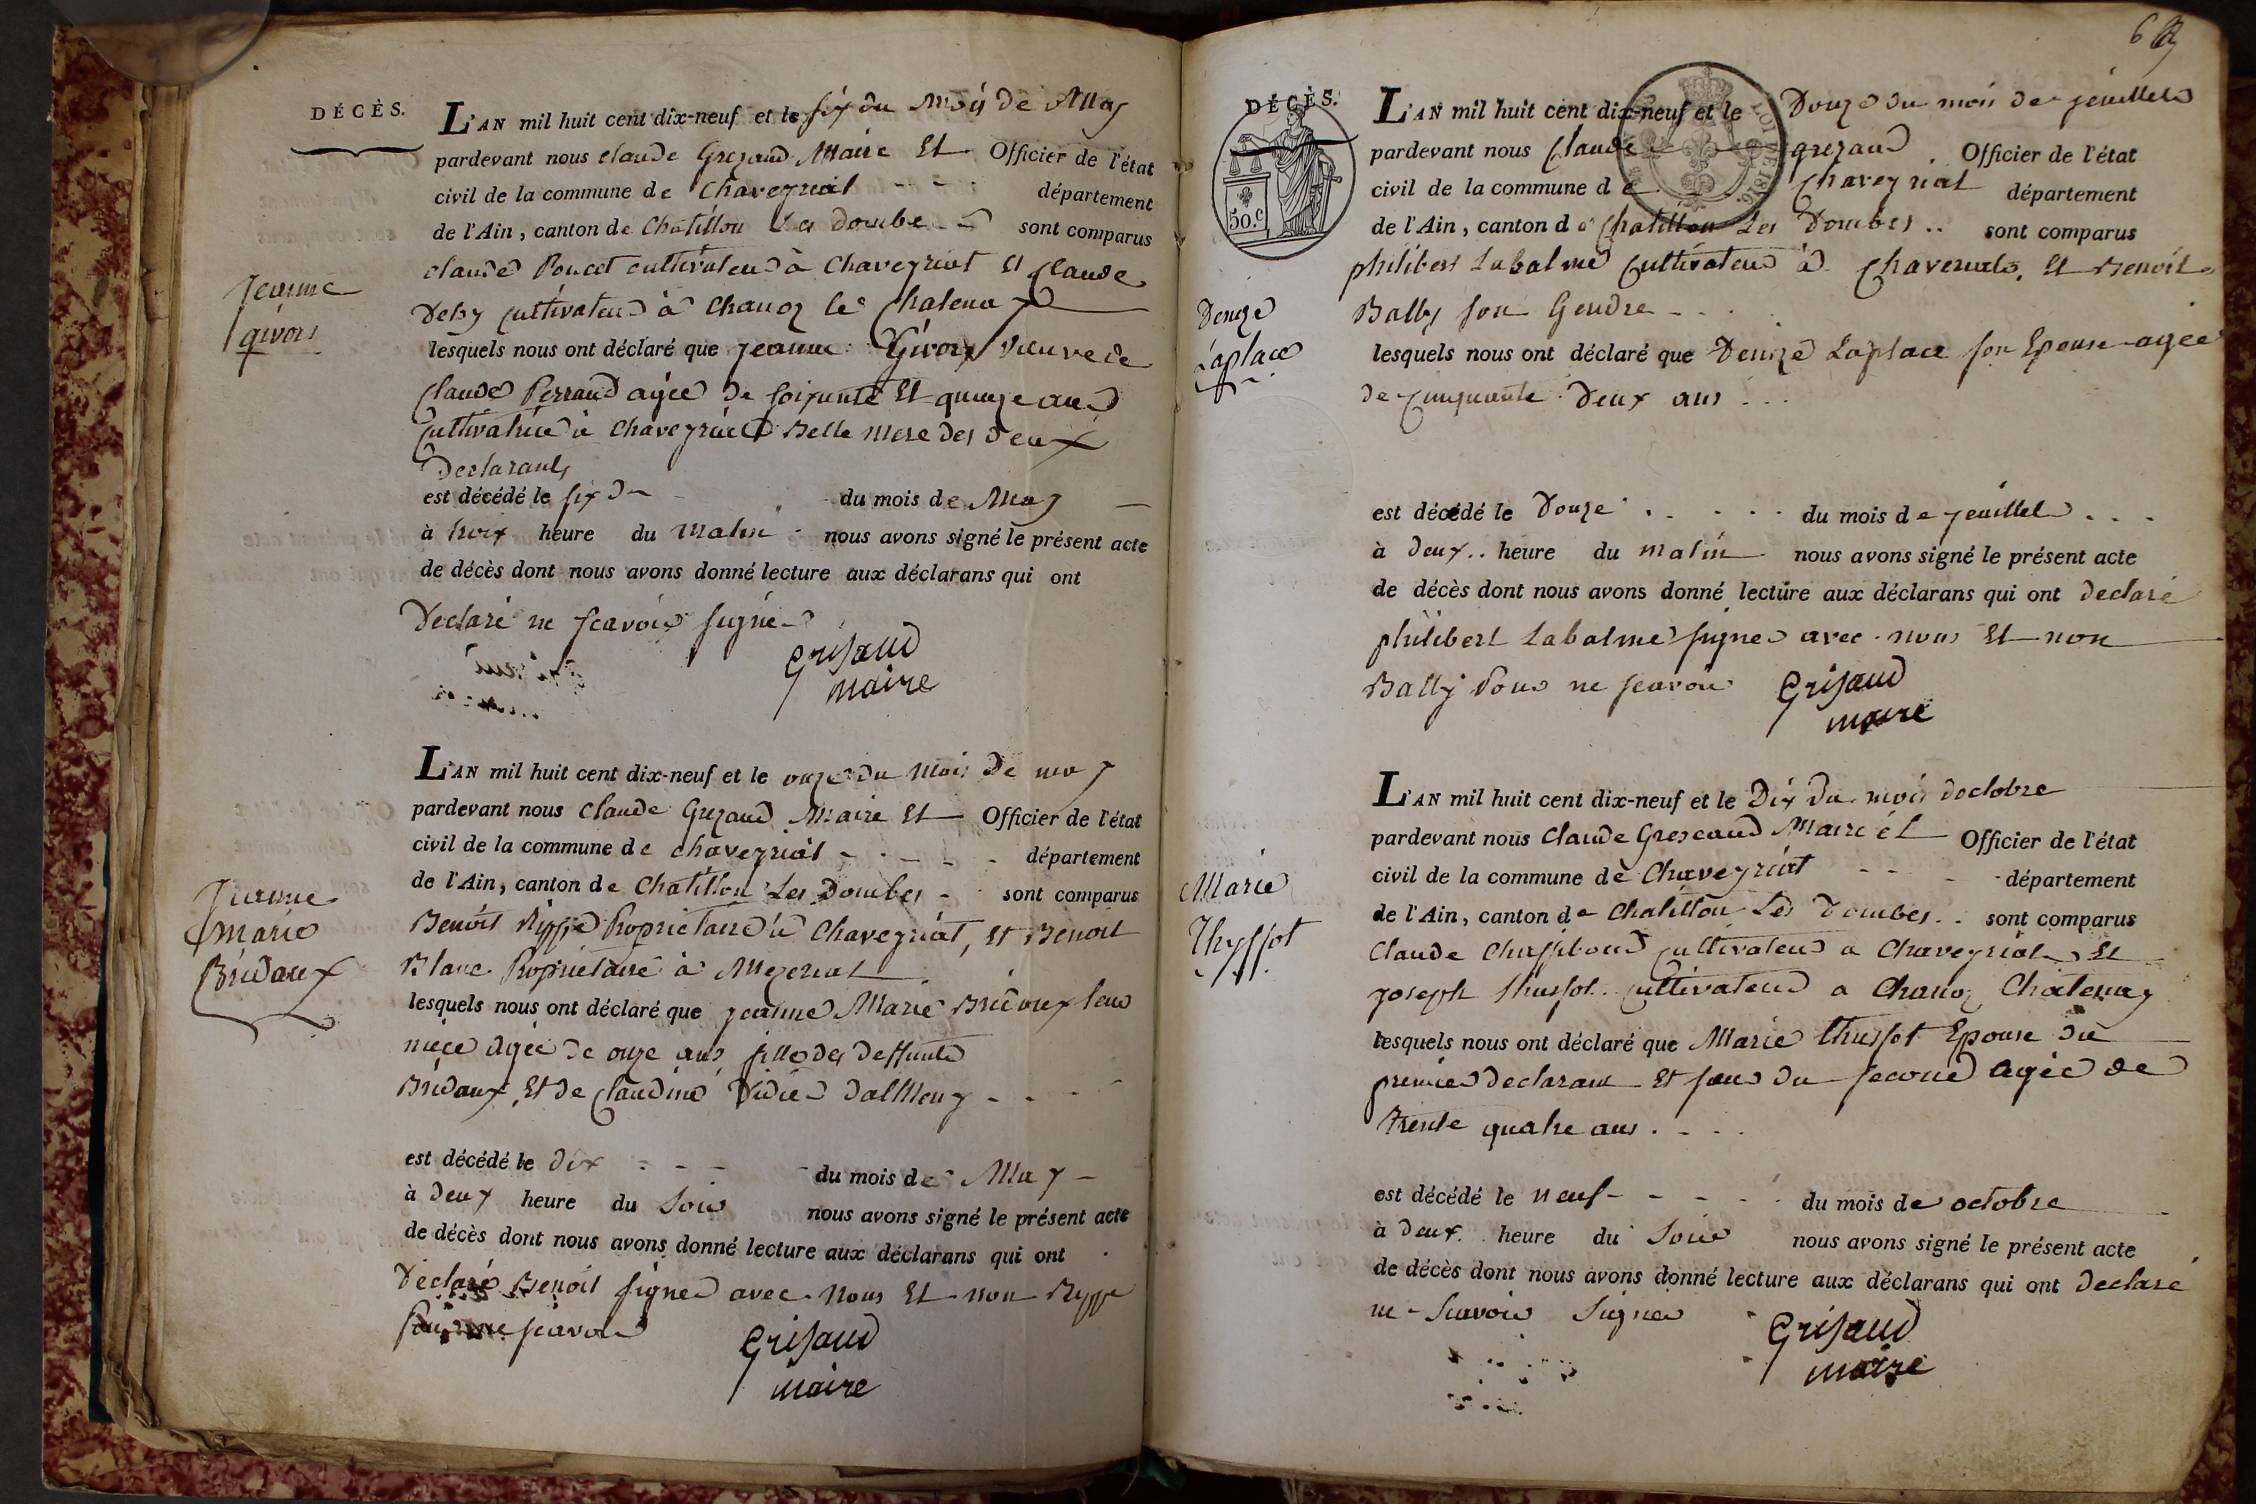 DÉCÈS.
L'AN mil huit cent dix-neuf et le six du Mois de May
pardevant nous claude Grezaud Maire Et Officier de l'état
civil de la commune de Chaveyriat département
de l'Ain, canton de Chatillon Les Dombe sont comparus
claude Poncet cultivateur à Chaveyriat Et Claude
Deby cultivateur à Chanoz le Chatenay
Jeanne
givors
lesquels nous ont déclaré que jeanne Givors veuve de
Claude Perraud agée de soixante Et quinze ans
cultivatrice à Chaveyriat Belle mere des deux
Declarants
est décédé le six du du mois de May
à heure du Matin nous avons signé le présent acte
de décès dont nous avons donné lecture aux déclarans qui ont
Declaré ne scavoir signé
Grisaud
maire
L'AN mil huit cent dix-neuf et le onze du Mois De may
pardevant nous Claude Grezaud Maire Et Officier de l'état
civil de la commune de chaveyriat département
de l'Ain, canton de Chatillon Les Dombes sont comparus
Jeanne
Marie
Bridaux
Benoit Proprietaire à Chaveyriat, Et Benoit
Blanc Proprietaire à Mezeriat
lesquels nous ont déclaré que jeanne Marie Bridaux leur
niece Agée de onze ans fille des deffunts
Bridaux, Et de Claudine
est décédé le dix du mois de May
à deux heure du Soir nous avons signé le présent acte
de décès dont nous avons donné lecture aux déclarans qui ont
Declaré Benoit signer avec nous Et non
scavoir
Grisaud
maire
DÉCÈS.
50.c
LOI DE 1816.
L'AN mil huit cent dix-neuf et le Douze du mois de jeuillet
pardevant nous Claude grezaud Officier de l'état
civil de la commune de Chaveyriat département
de l'Ain, canton de Chatillon Les Dombes .. sont comparus
philibert Labalme cultivateur à Et Benoit
Bally son Gendre
Denize
Laplace
lesquels nous ont déclaré que Denize Laplace son Epouse agée
de cinquante Deux ans ...
est décédé le Douze du mois de jeuillet ...
à deux .. heure du matin nous avons signé le présent acte
de décès dont nous avons donné lecture aux déclarans qui ont declaré
philibert Labalme signer avec nous Et non
Bally Pour ne scavoir
Grisaud
maire
L'AN mil huit cent dix-neuf et le Dix du mois doctobre
pardevant nous Claude Grezeaud Maire Et Officier de l'état
civil de la commune de Chaveyriat département
de l'Ain, canton de Chatillon Les Dombes .. sont comparus
Marie
Thyssot
Claude cultivateur a Chaveyriat Et
joseph thussot cultivateur a Chanoz Chatenay
lesquels nous ont déclaré que Marie thussot Epouse du
premier declarant Et seur du second Agée de
trente quatre ans ....
est décédé le neuf du mois de octobre
à deux heure du Soir nous avons signé le présent acte
de décès dont nous avons donné lecture aux déclarans qui ont declaré
ne Scavoir Signer
Grisaud
maire